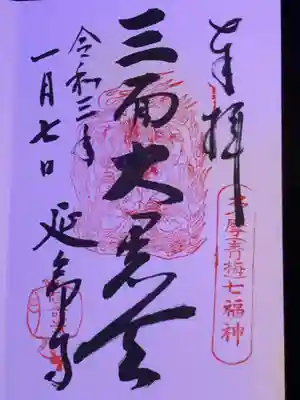 奉拝
多摩青梅七福神
三面大黒天
令和三年
一月七日
延命寺